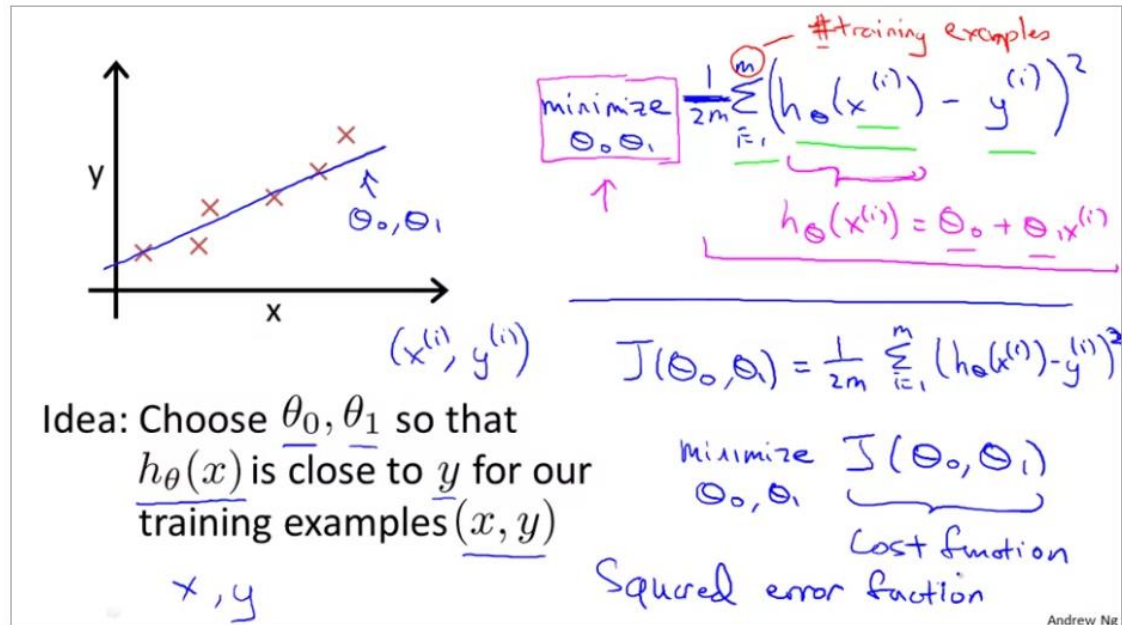 y
x
θ₀,θ₁
(x⁽ⁱ⁾, y⁽ⁱ⁾)
Idea: Choose θ₀, θ₁ so that
h_θ(x) is close to y for our
training examples (x, y)
x, y
#training examples
minimize
θ₀ θ₁
1/2m ∑ᵢ₌₁ᵐ (h_θ(x⁽ⁱ⁾) - y⁽ⁱ⁾)²
h_θ(x⁽ⁱ⁾) = θ₀ + θ₁x⁽ⁱ⁾
J(θ₀,θ₁) = 1/2m ∑ᵢ₌₁ᵐ (h_θ(x⁽ⁱ⁾)-y⁽ⁱ⁾)²
minimize J(θ₀,θ₁)
θ₀,θ₁
Cost function
Squared error faction
Andrew Ng